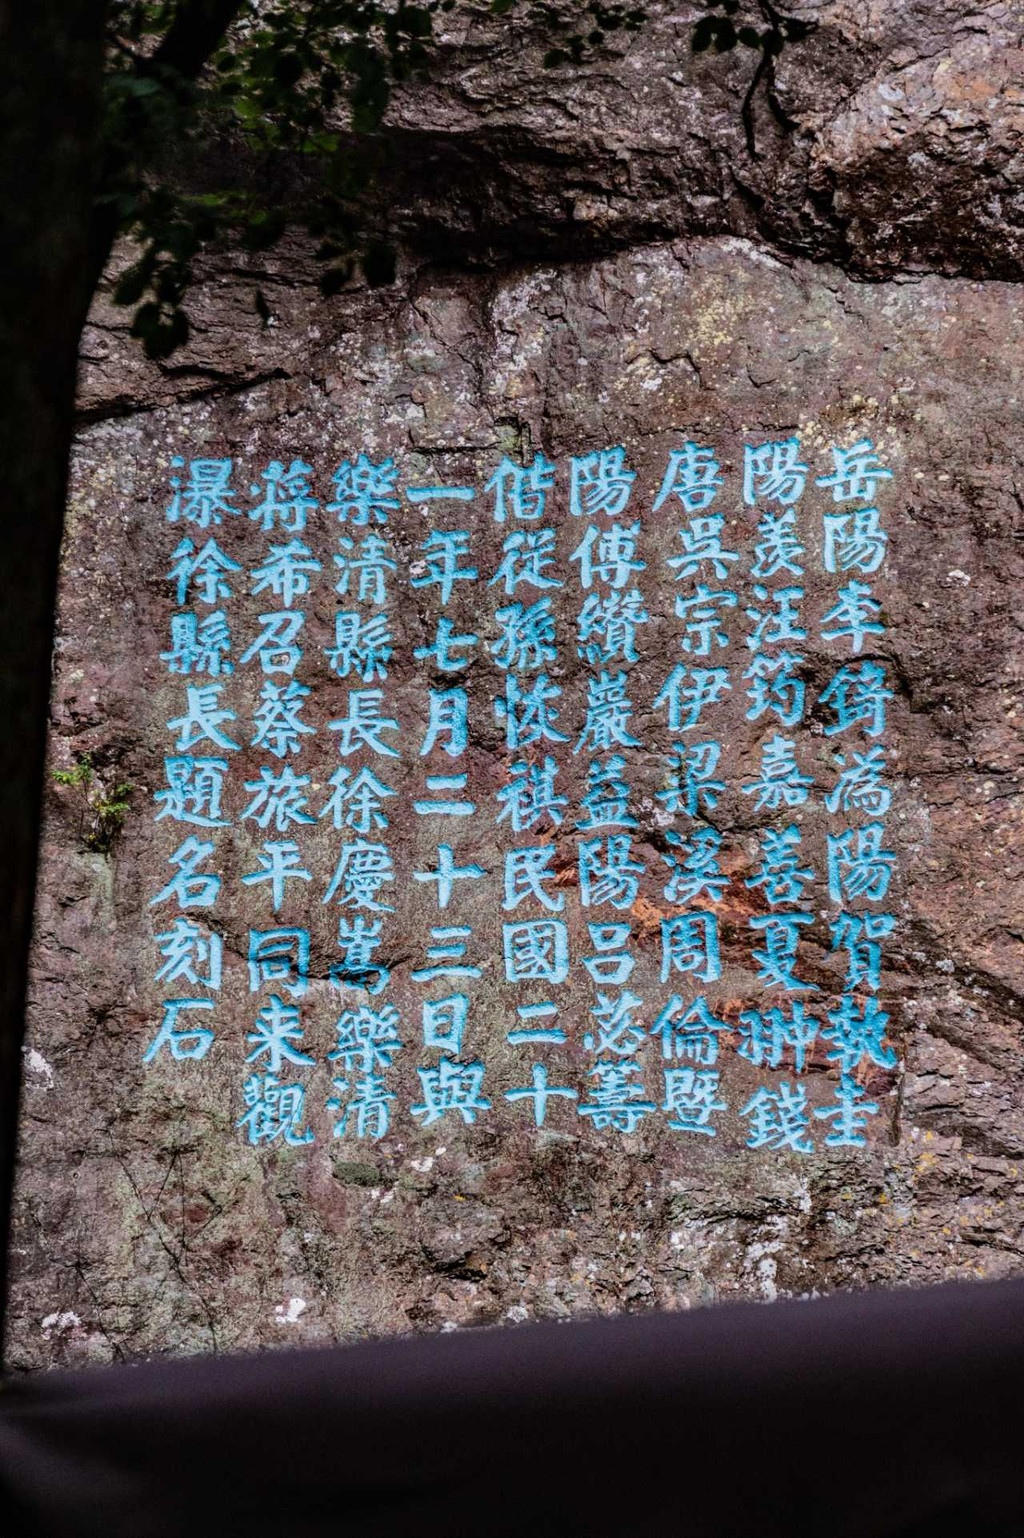 岳陽李錡溈陽賀執圭
陽羨汪筠嘉善夏翀錢
唐吳宗伊梁溪周倫暨
陽傅纘巖益陽呂苾籌
偕從孫恢祺民國二十
一年七月二十三日與
樂清縣長徐慶嵩樂清
蔣希召蔡旅平同来觀
瀑徐縣長題名刻石